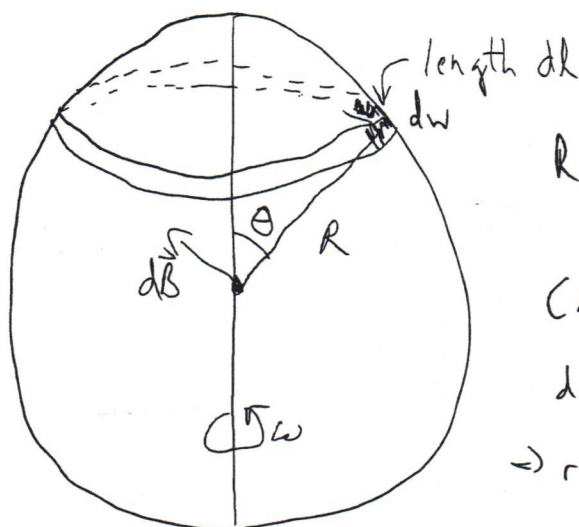 length dl
dw
R
θ
R
dB
C
d
ω
⇒ r